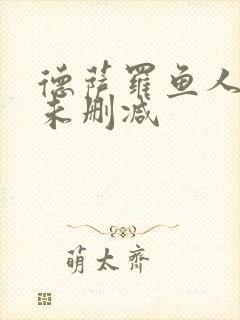 德萨罗鱼人
未删减
萌太齐